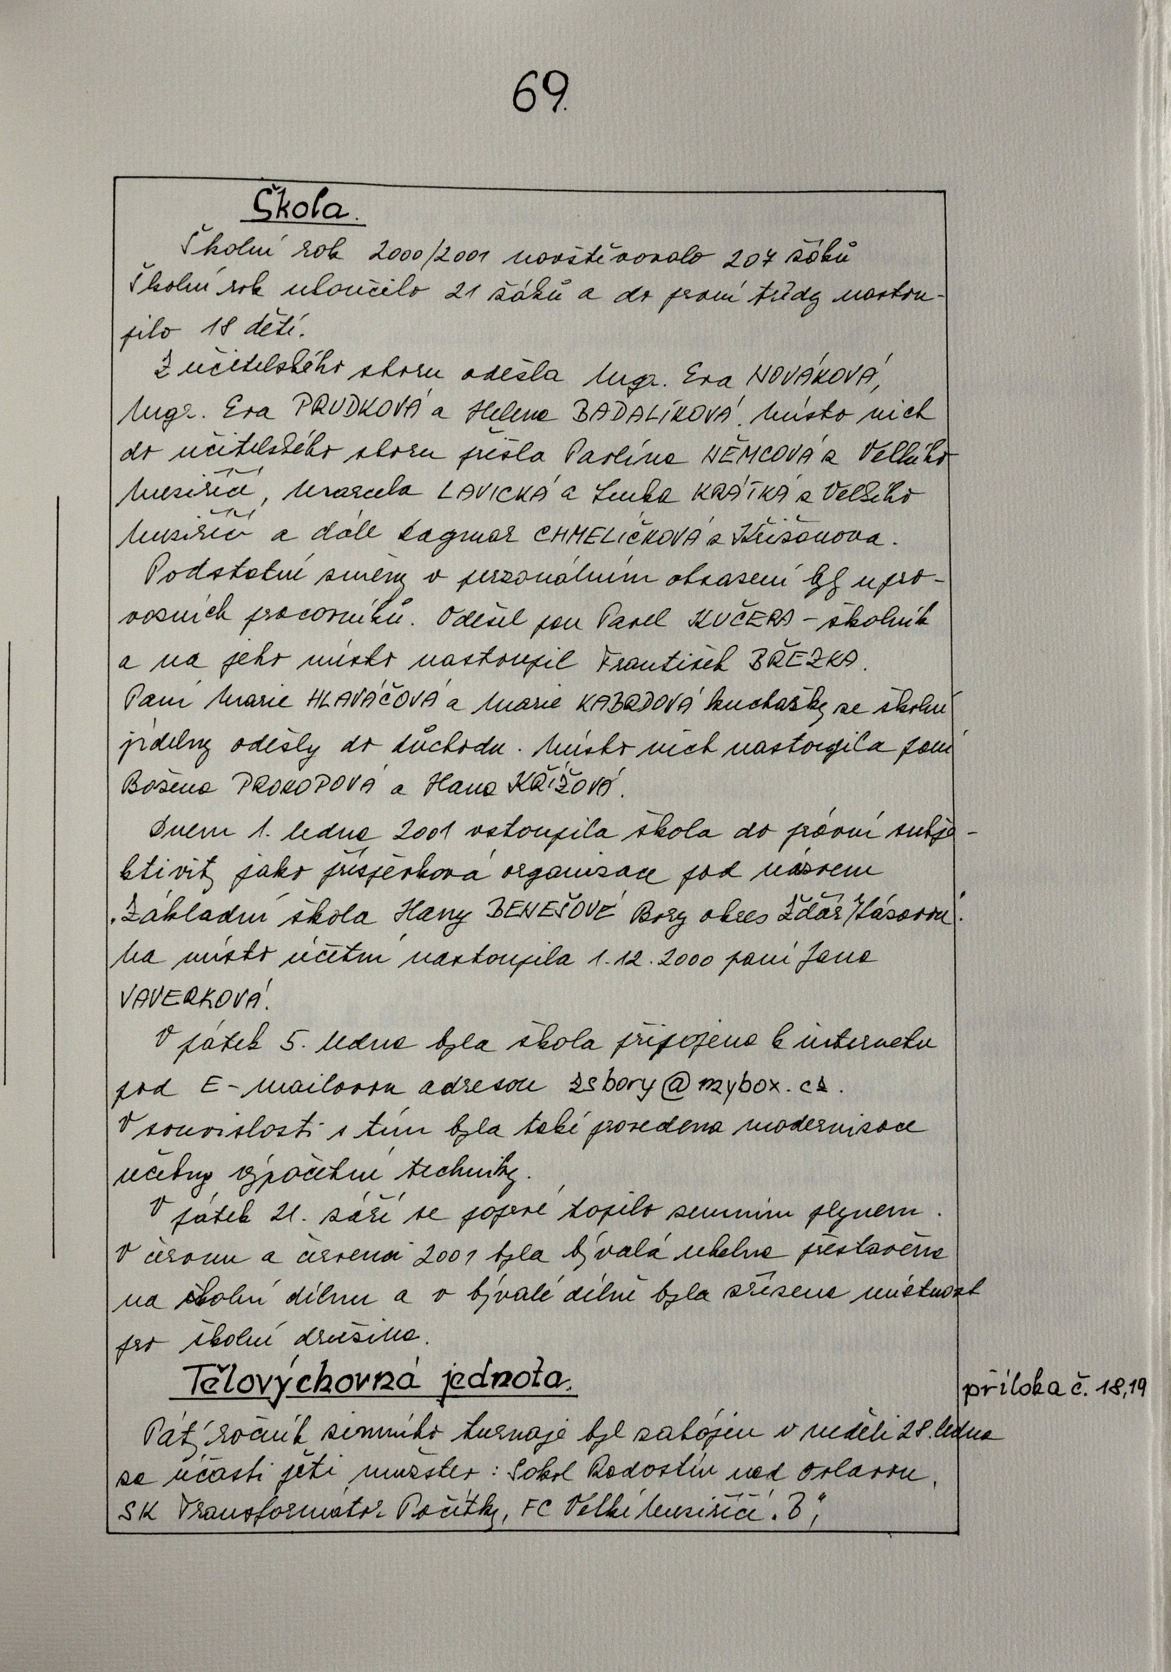 69.
Škola.
Školní rok 2000/2001 navštěvovalo 207 žáků
Školní rok ukončilo 21 žáků a do první třídy nastou-
pilo 18 dětí.
Z učitelského sboru odešla Mgr. Eva NOVÁKOVÁ,
Mgr. Eva PRUDKOVÁ a Helena BADALÍKOVÁ. Místo nich
do učitelského sboru přišla Pavlína NĚMCOVÁ z Velkého
Meziříčí, Marcela LAVICKÁ a Lenka KRÁTKÁ z Velkého
Meziříčí a dále Dagmar CHMELÍČKOVÁ z Křižanova.
Podstatné změny v personálním obsazení byly u pro-
vozních pracovníků. Odešel pan Pavel KUČERA – školník
a na jeho místo nastoupil František BŘEZKA.
Paní Marie HLAVÁČOVÁ a Marie KABRDOVÁ kuchařky ze školní
jídelny odešly do důchodu. Místo nich nastoupila paní
Božena PROKOPOVÁ a Hana KŘÍŽOVÁ.
Dnem 1. ledna 2001 vstoupila škola do právní subje-
ktivity jako příspěvková organizace pod názvem
„Základní škola Hany BENEŠOVÉ Bory okres Žďár n/Sázavou".
Na místo účetní nastoupila 1.12.2000 paní Jana
VAVERKOVÁ.
V pátek 5. ledna byla škola připojena k internetu
pod E-mailovou adresou zsbory@mybox.cz.
V souvislosti s tím byla také provedena modernizace
učebny výpočetní techniky.
V pátek 21. září se poprvé topilo zemním plynem.
V červnu a červenci 2001 byla bývalá uhelna přestavěna
na školní dílnu a v bývalé dílně byla zřízena místnost
pro školní družinu.
Tělovýchovná jednota.
příloha č. 18,19
Pátý ročník zimního turnaje byl zahájen v neděli 28. ledna
za účasti pěti mužstev: Sokol Radostín nad Oslavou,
SK Transformátor Počítky, FC Velké Meziříčí „B",